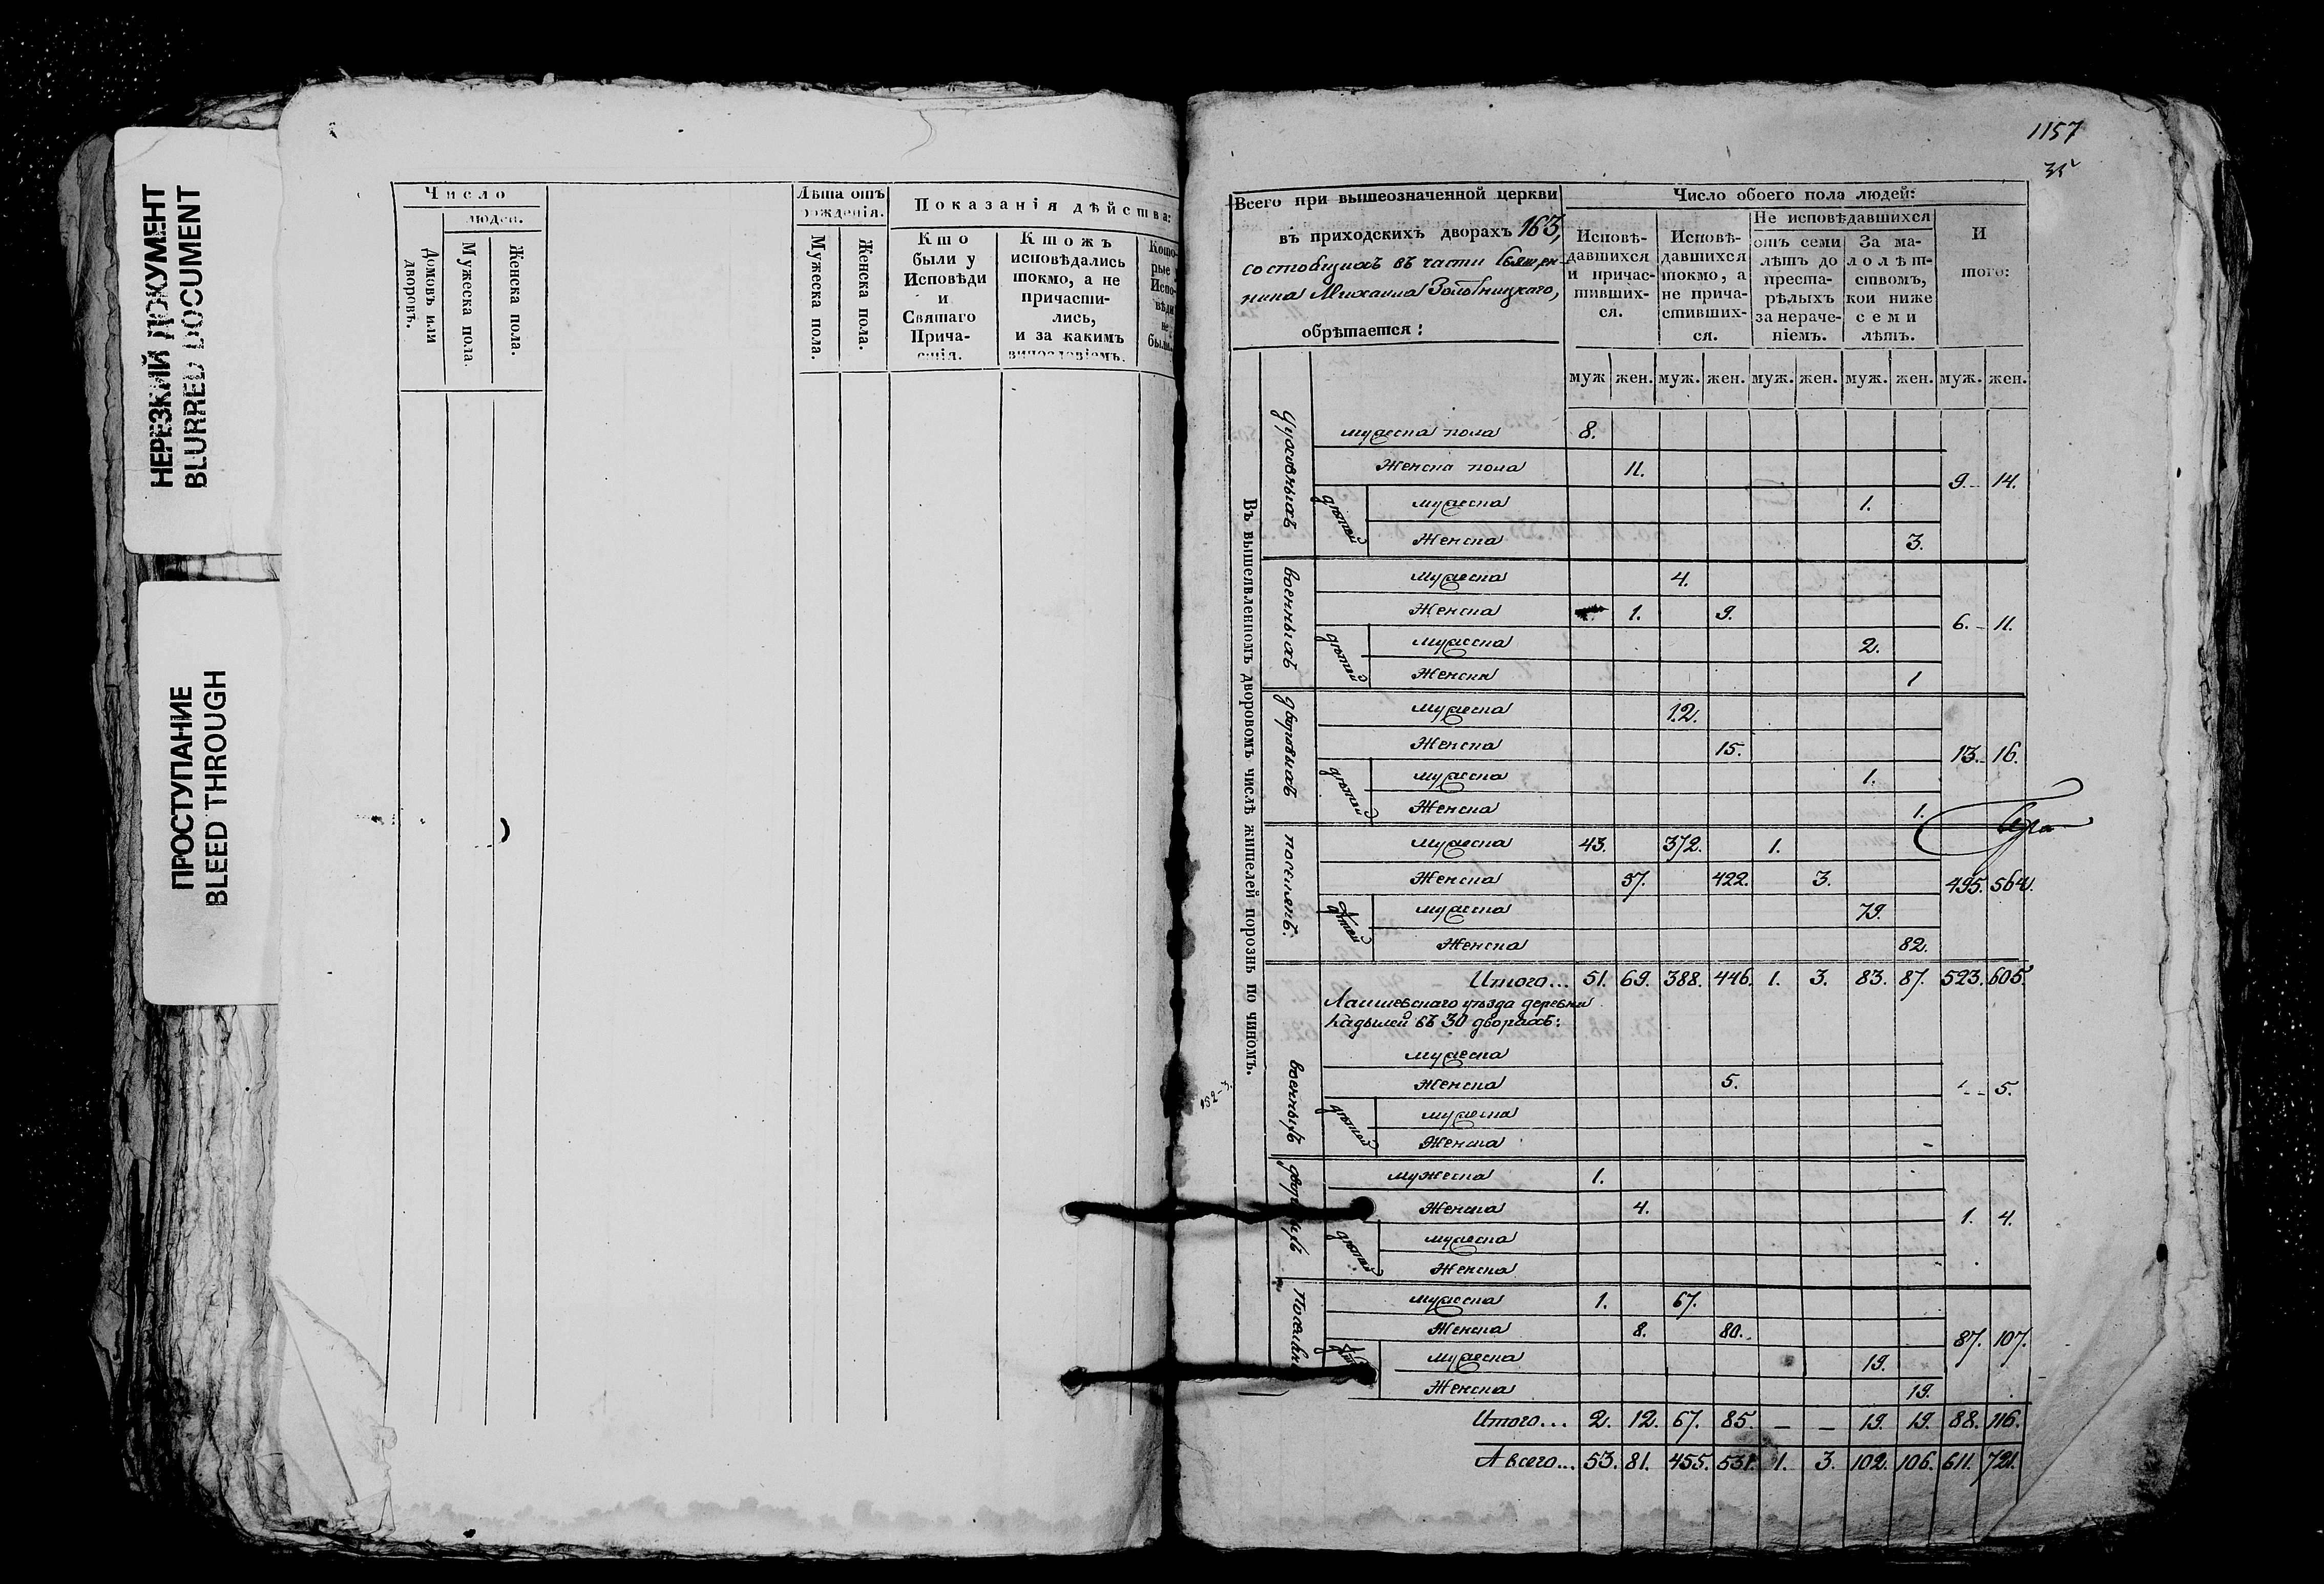 НЕРЕЗКИЙ ДОКУМЕНТ
BLURRED DOCUMENT
ПРОСТУПАНИЕ
BLEED THROUGH
Число
людей.
Домовъ или дворовъ.
Мужеска пола.
Женска пола.
Лѣта отъ рожденія.
Мужеска пола.
Женска пола.
Показанія дѣйства:
Кто
были у
Исповѣди
и
Святаго
Прича-
стія.
Ктожъ
исповѣдались
токмо, а не
причасти-
лись,
и за какимъ
винословіемъ.
Кото-
рые
Испо-
вѣди
не
были.
1157
35
Всего при вышеозначенной церкви
въ приходскихъ дворахъ 163,
состоящихъ въ части Священ-
ника Михаила Золотницкаго,
обрѣтается:
Число обоего пола людей:
Исповѣ-
давшихся
и причас-
тивших-
ся.
Исповѣ-
давшихся
токмо, а
не прича-
стивших-
ся.
Не исповѣдавшихся
отъ семи
лѣтъ до
преста-
рѣлыхъ
за нераче-
ніемъ.
За ма-
лолѣт-
ствомъ,
кои ниже
семи
лѣтъ.
И
того:
муж жен. муж. жен. муж. жен. муж. жен. муж. жен.
Въ вышеявленномъ дворовомъ числѣ жителей порознь по чиномъ.
Духовныхъ
мужеска пола 8.
Женска пола 11.
9. 14.
дѣтей
мужеска 1.
Женска 3.
военныхъ
мужеска 4.
Женска 1. 9.
6. 11.
дѣтей
мужеска 2.
Женска 1
дворовыхъ
мужеска 12.
Женска 15.
13. 16.
дѣтей
мужеска 1.
Женска 1.
поселянъ.
мужеска 43. 372. 1.
Женска 57. 422. 3.
495. 564.
дѣтей
мужеска 79.
Женска 82.
Итого... 51. 69. 388. 446. 1. 3. 83. 87. 523. 605.
Лаишевскаго уѣзда деревни
Кадылей въ 30 дворахъ:
военныхъ
мужеска
Женска 5.
5.
дѣтей
мужеска
Женска
дворовыхъ
мужеска 1.
Женска 4.
1. 4.
дѣтей
мужеска
Женска
Поселянъ
мужеска 1. 67.
Женска 8. 80.
87. 107.
мужеска 19.
Женска 19.
Итого... 2. 12. 67. 85. — — 19. 19. 88. 116.
А всего... 53. 81. 455. 531. 1. 3. 102. 106. 611. 721.